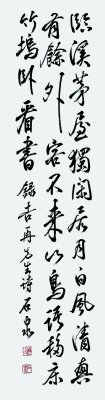 臨溪茅屋獨閑居月白風清興
有餘外客不來山鳥語移床
竹塢臥看書 錄吉再先生詩 石泉